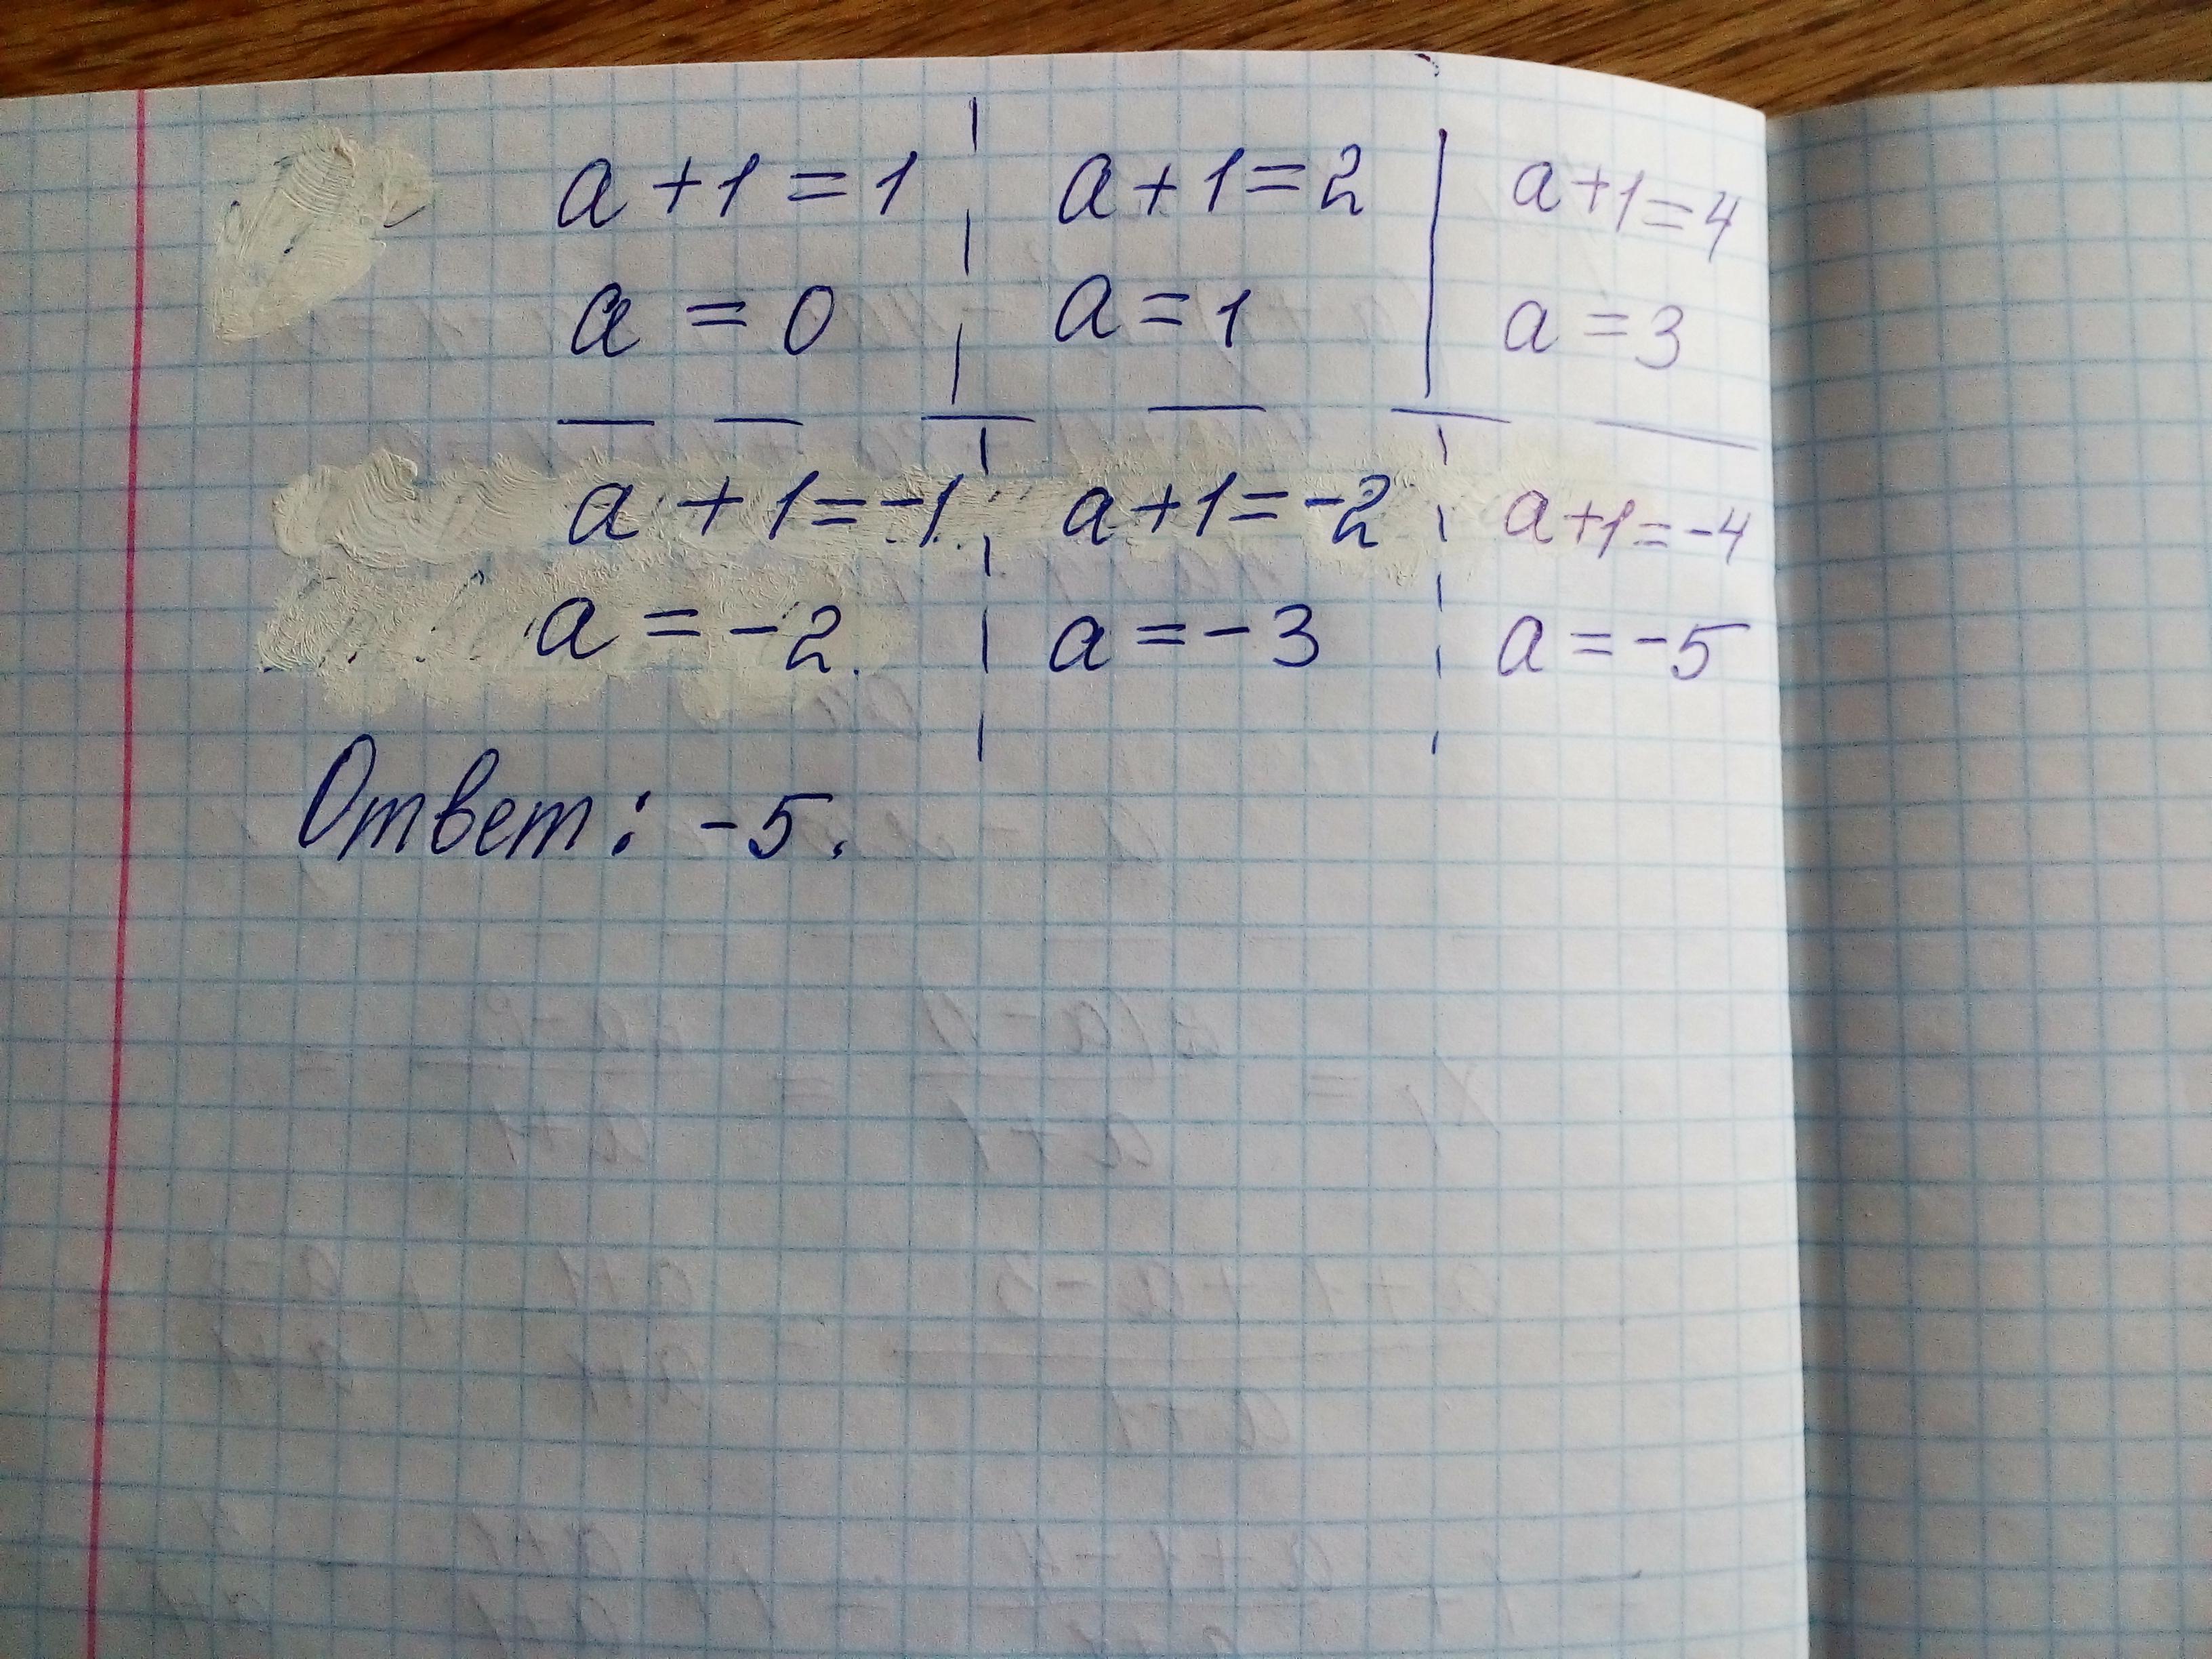 a+1=1 a+1=2 a+1=4
a=0 a=1 a=3
a+1=-1 a+1=-2 a+1=-4
a=-2 a=-3 a=-5
Ответ: -5.